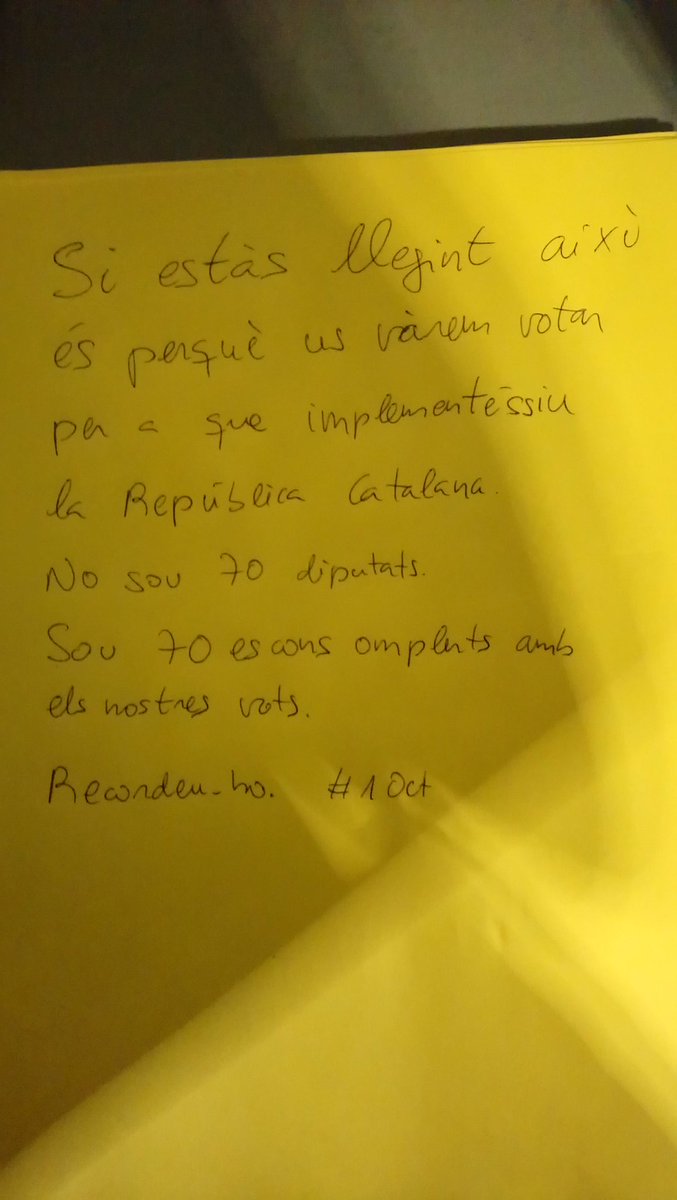 Si estàs llegint això
és perquè us vàrem votar
per a que implementéssiu
la República Catalana.
No sou 70 diputats.
Sou 70 escons omplerts amb
els nostres vots.
Recordeu-ho. #1Oct